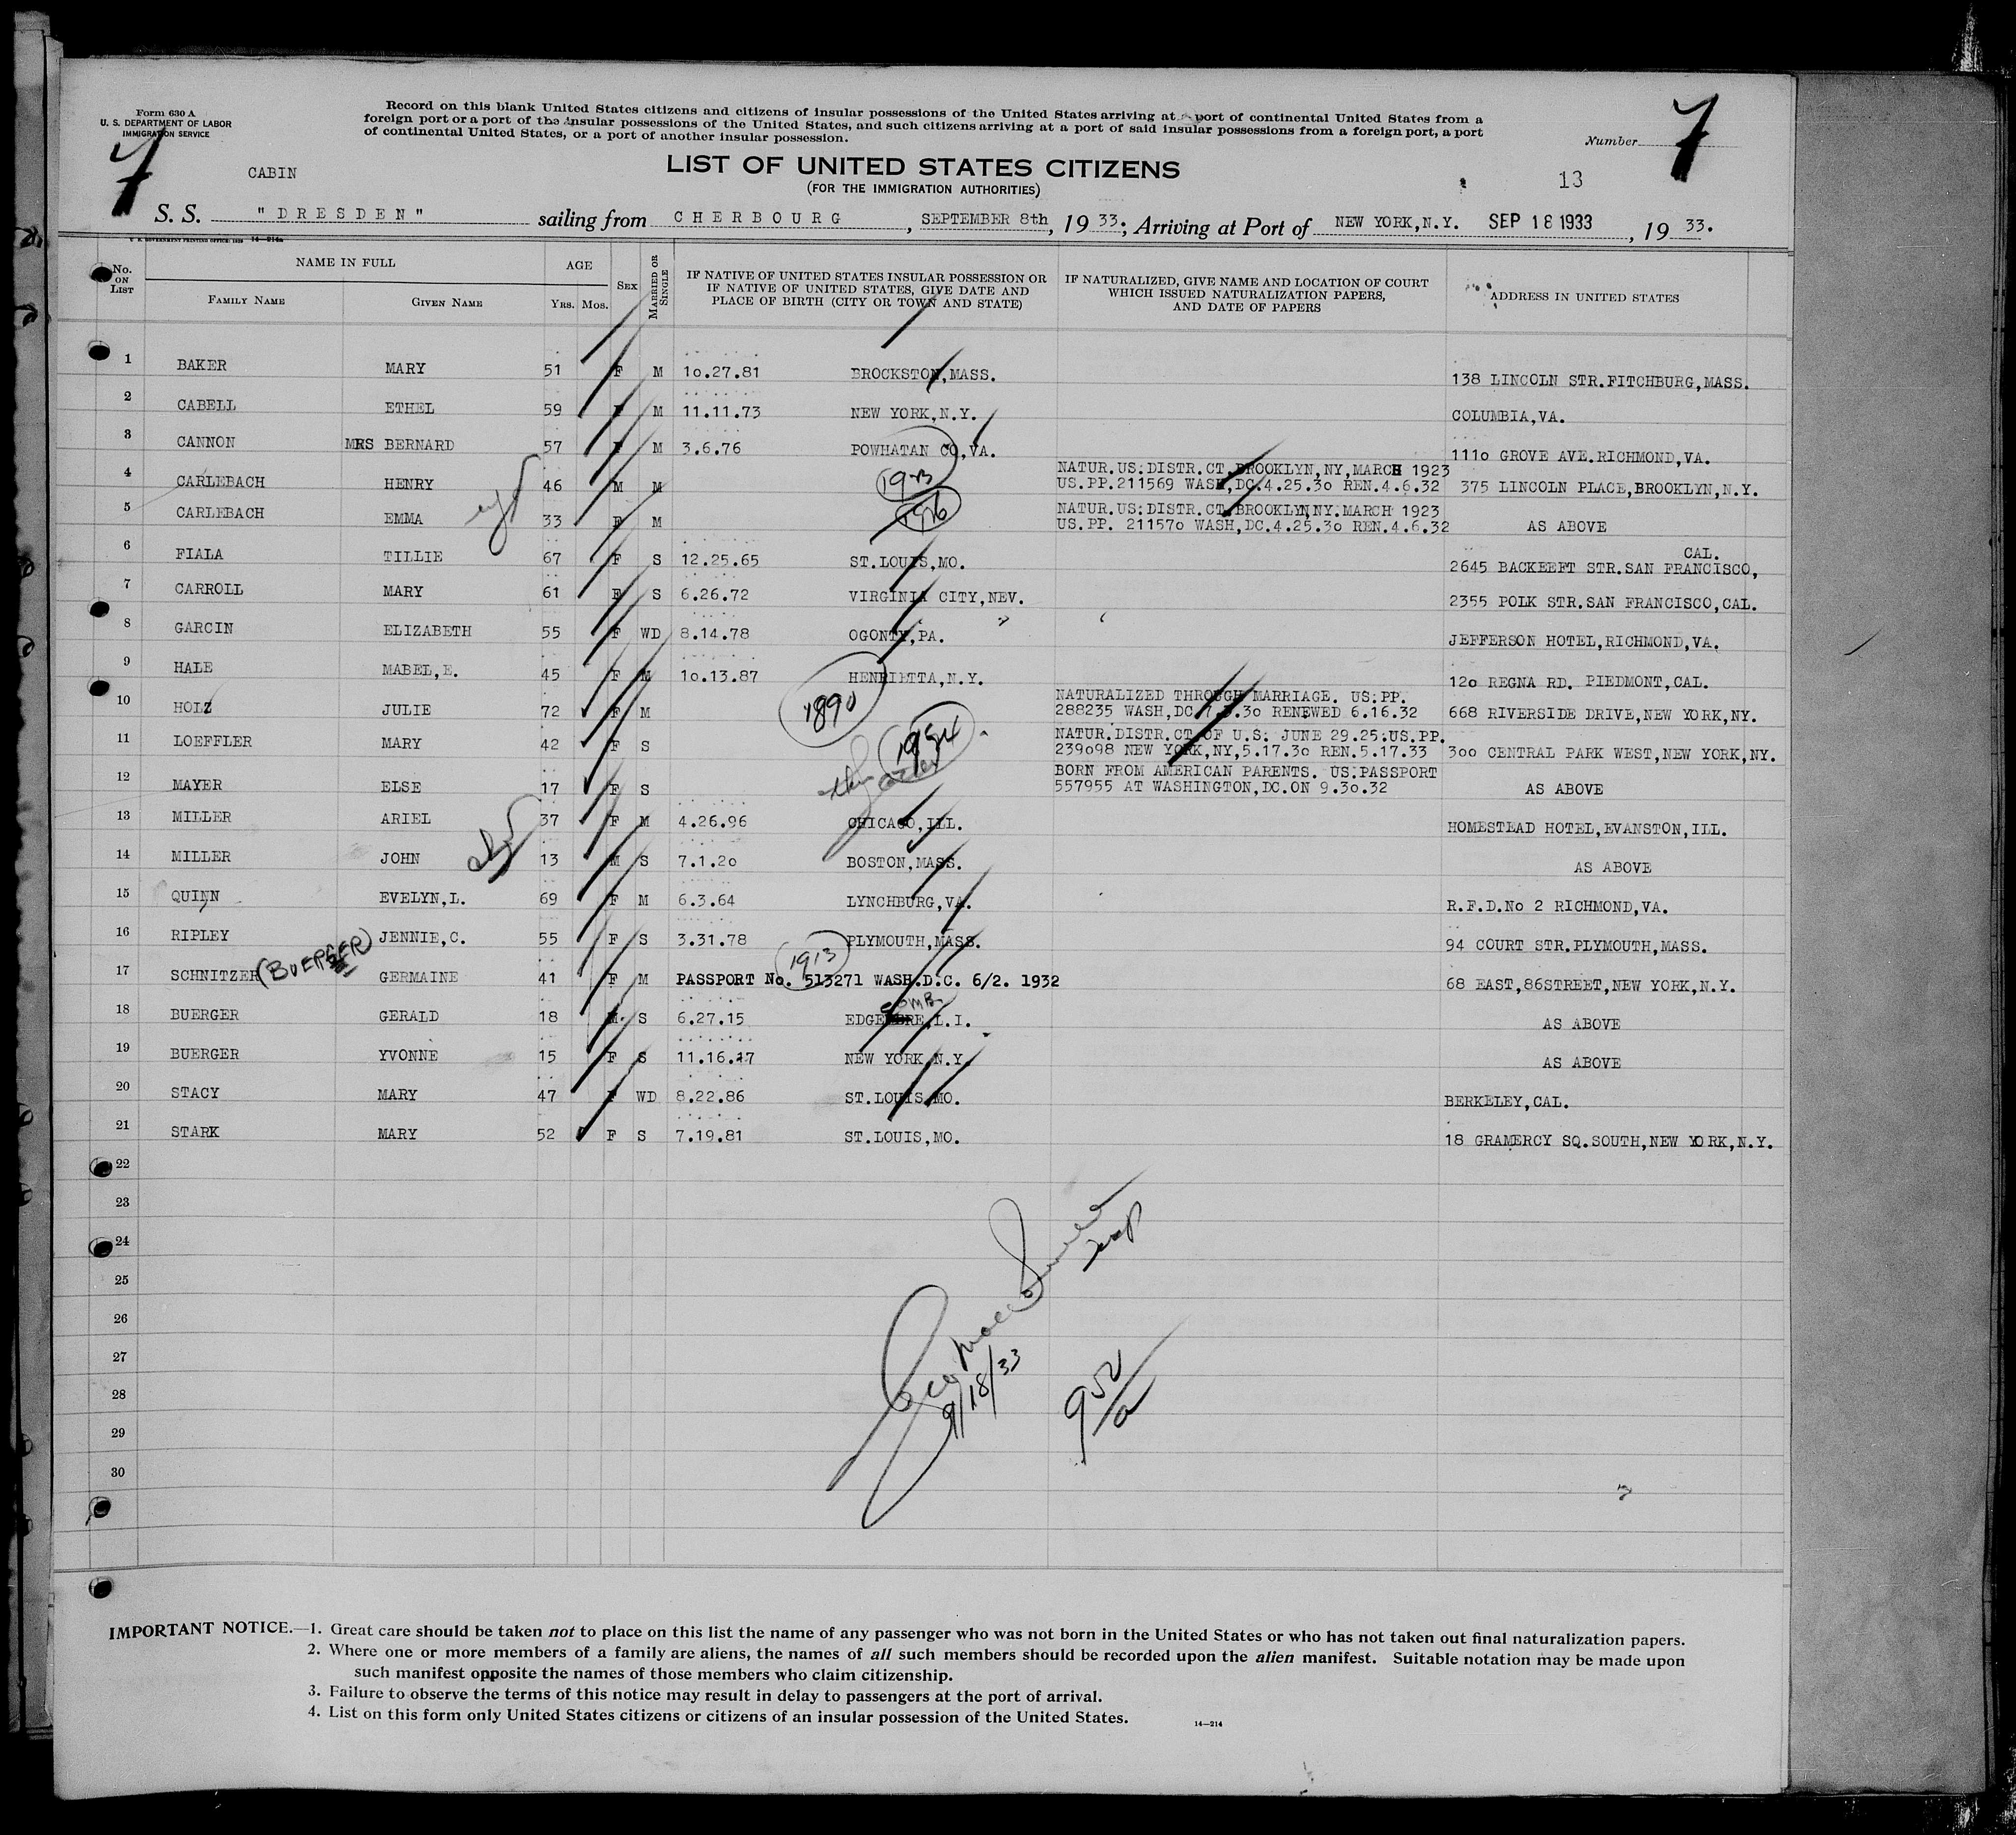 Form 630 A
U. S. DEPARTMENT OF LABOR
IMMIGRATION SERVICE
Record on this blank United States citizens and citizens of insular possessions of the United States arriving at a port of continental United States from a
foreign port or a port of the insular possessions of the United States, and such citizens arriving at a port of said insular possessions from a foreign port, a port
of continental United States, or a port of another insular possession.
Number
7
7
CABIN
LIST OF UNITED STATES CITIZENS
(FOR THE IMMIGRATION AUTHORITIES)
13
S. S. "DRESDEN" sailing from CHERBOURG, SEPTEMBER 8th, 19 33.; Arriving at Port of NEW YORK,N.Y. SEP 18 1933, 19 33.
U. S. GOVERNMENT PRINTING OFFICE: 14—214
No. ON LIST
NAME IN FULL
FAMILY NAME GIVEN NAME
AGE
YRS. MOS.
SEX
MARRIED OR SINGLE
IF NATIVE OF UNITED STATES INSULAR POSSESSION OR
IF NATIVE OF UNITED STATES, GIVE DATE AND
PLACE OF BIRTH (CITY OR TOWN AND STATE)
IF NATURALIZED, GIVE NAME AND LOCATION OF COURT
WHICH ISSUED NATURALIZATION PAPERS,
AND DATE OF PAPERS
ADDRESS IN UNITED STATES
1 BAKER MARY 51 F M 1o.27.81 BROCKSTON,MASS. 138 LINCOLN STR.FITCHBURG,MASS.
2 CABELL ETHEL 59 F M 11.11.73 NEW YORK,N.Y. COLUMBIA,VA.
3 CANNON MRS BERNARD 57 F M 3.6.76 POWHATAN CO,VA. 111o GROVE AVE.RICHMOND,VA.
4 CARLEBACH HENRY 46 M M 1923 NATUR.US:DISTR.CT.BROOKLYN,NY,MARCH 1923
US.PP.211569 WASH,DC.4.25.3o REN.4.6.32 375 LINCOLN PLACE,BROOKLYN,N.Y.
5 CARLEBACH EMMA 33 F M 1926 NATUR.US:DISTR.CT.BROOKLYN,NY.MARCH 1923
US.PP. 21157o WASH,DC.4.25.3o REN.4.6.32 AS ABOVE
6 FIALA TILLIE 67 F S 12.25.65 ST.LOUIS,MO. CAL.
2645 BACKEEFT STR.SAN FRANCISCO,
7 CARROLL MARY 61 F S 6.26.72 VIRGINIA CITY,NEV. 2355 POLK STR.SAN FRANCISCO,CAL.
8 GARCIN ELIZABETH 55 F WD 8.14.78 OGONTY,PA. JEFFERSON HOTEL,RICHMOND,VA.
9 HALE MABEL,E. 45 F M 1o.13.87 HENRIETTA,N.Y. 12o REGNA RD. PIEDMONT,CAL.
10 HOLZ JULIE 72 F M 1890 NATURALIZED THROUGH MARRIAGE. US:PP.
288235 WASH,DC.7.3.3o RENEWED 6.16.32 668 RIVERSIDE DRIVE,NEW YORK,NY.
11 LOEFFLER MARY 42 F S NATUR.DISTR.CT.OF U.S: JUNE 29.25:US.PP.
239o98 NEW YORK,NY,5.17.3o REN.5.17.33 3oo CENTRAL PARK WEST,NEW YORK,NY.
12 MAYER ELSE 17 F S BORN FROM AMERICAN PARENTS. US:PASSPORT
557955 AT WASHINGTON,DC.ON 9.3o.32 AS ABOVE
13 MILLER ARIEL 37 F M 4.26.96 CHICAGO,ILL. HOMESTEAD HOTEL,EVANSTON,ILL.
14 MILLER JOHN 13 M S 7.1.2o BOSTON,MASS. AS ABOVE
15 QUINN EVELYN,L. 69 F M 6.3.64 LYNCHBURG,VA. R.F.D.No 2 RICHMOND,VA.
16 RIPLEY JENNIE,C. 55 F S 3.31.78 PLYMOUTH,MASS. 94 COURT STR.PLYMOUTH,MASS.
17 SCHNITZER (BUERGER) GERMAINE 41 F M 1913 PASSPORT No. 513271 WASH.D.C. 6/2. 1932 68 EAST,86STREET,NEW YORK,N.Y.
18 BUERGER GERALD 18 M. S 6.27.15 L.I. AS ABOVE
19 BUERGER YVONNE 15 F S 11.16.17 NEW YORK,N.Y. AS ABOVE
20 STACY MARY 47 F WD 8.22.86 ST.LOUIS,MO. BERKELEY,CAL.
21 STARK MARY 52 F S 7.19.81 ST.LOUIS,MO. 18 GRAMERCY SQ.SOUTH,NEW YORK,N.Y.
22
23
24
25
26
27
28
29
30
9/18/33
IMPORTANT NOTICE.—1. Great care should be taken not to place on this list the name of any passenger who was not born in the United States or who has not taken out final naturalization papers.
2. Where one or more members of a family are aliens, the names of all such members should be recorded upon the alien manifest. Suitable notation may be made upon
such manifest opposite the names of those members who claim citizenship.
3. Failure to observe the terms of this notice may result in delay to passengers at the port of arrival.
4. List on this form only United States citizens or citizens of an insular possession of the United States.
14—214